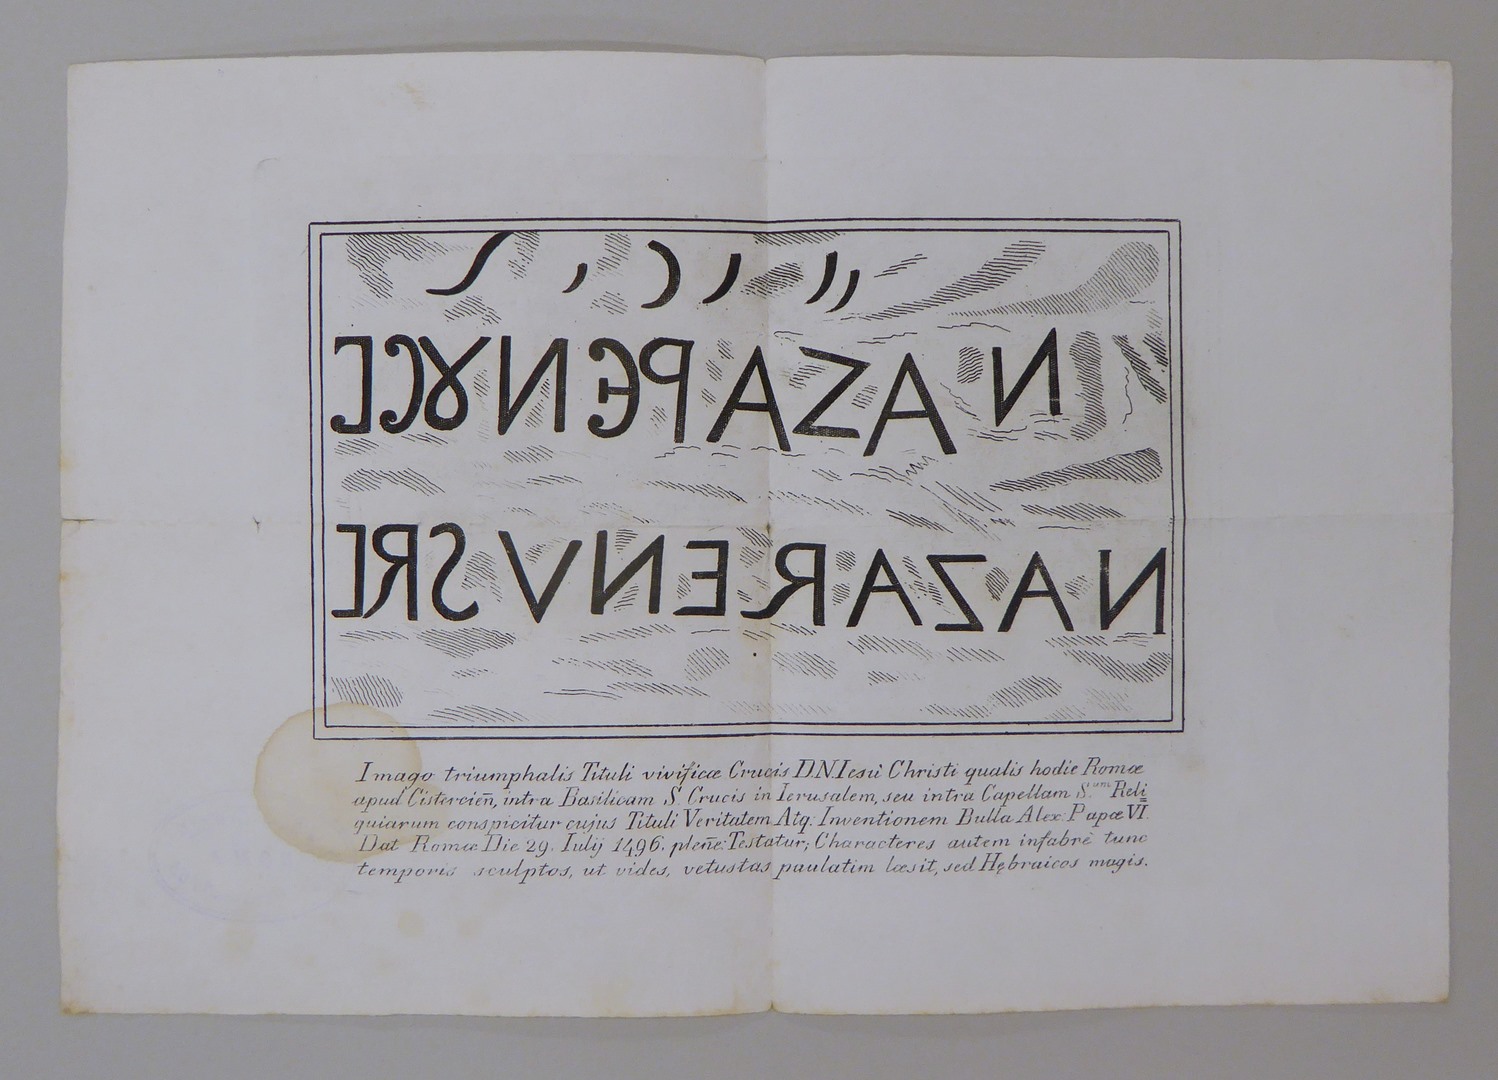 NAZAPЄNȢCE
NAZARENVSRE
Imago triumphalis Tituli vivificæ Crucis D.N.Iesù Christi qualis hodie Romæ
apud Cistercieñ, intra Basilicam S. Crucis in Ierusalem, seu intra Capellam S.um Reli=
quiarum conspicitur cujus Tituli Veritatem Atq. Inventionem Bulla Alex: Papæ VI.
Dat Romæ Die 29. Iulij 1496. pleñe: Testatur; Characteres autem infabrè tunc
temporis sculptos, ut vides, vetustas paulatim læsit, sed Hębraicos magis.